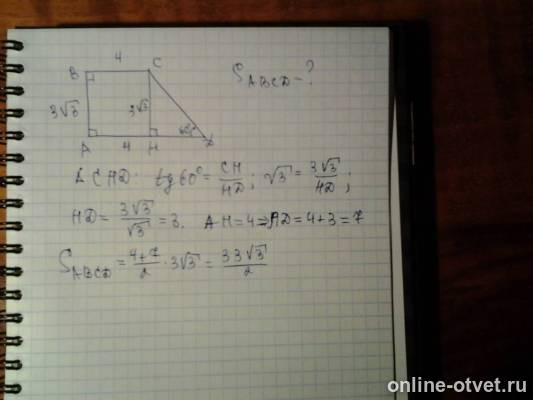 4
B C S_ABCD - ?
3√3 3√3
60°
A 4 H D
Δ CHD: tg 60° = CH/HD; √3 = 3√3/HD;
HD = 3√3/√3 = 3. AH = 4 ⇒ AD = 4 + 3 = 7
S_ABCD = (4+7)/2 · 3√3 = 33√3/2
online-otvet.ru